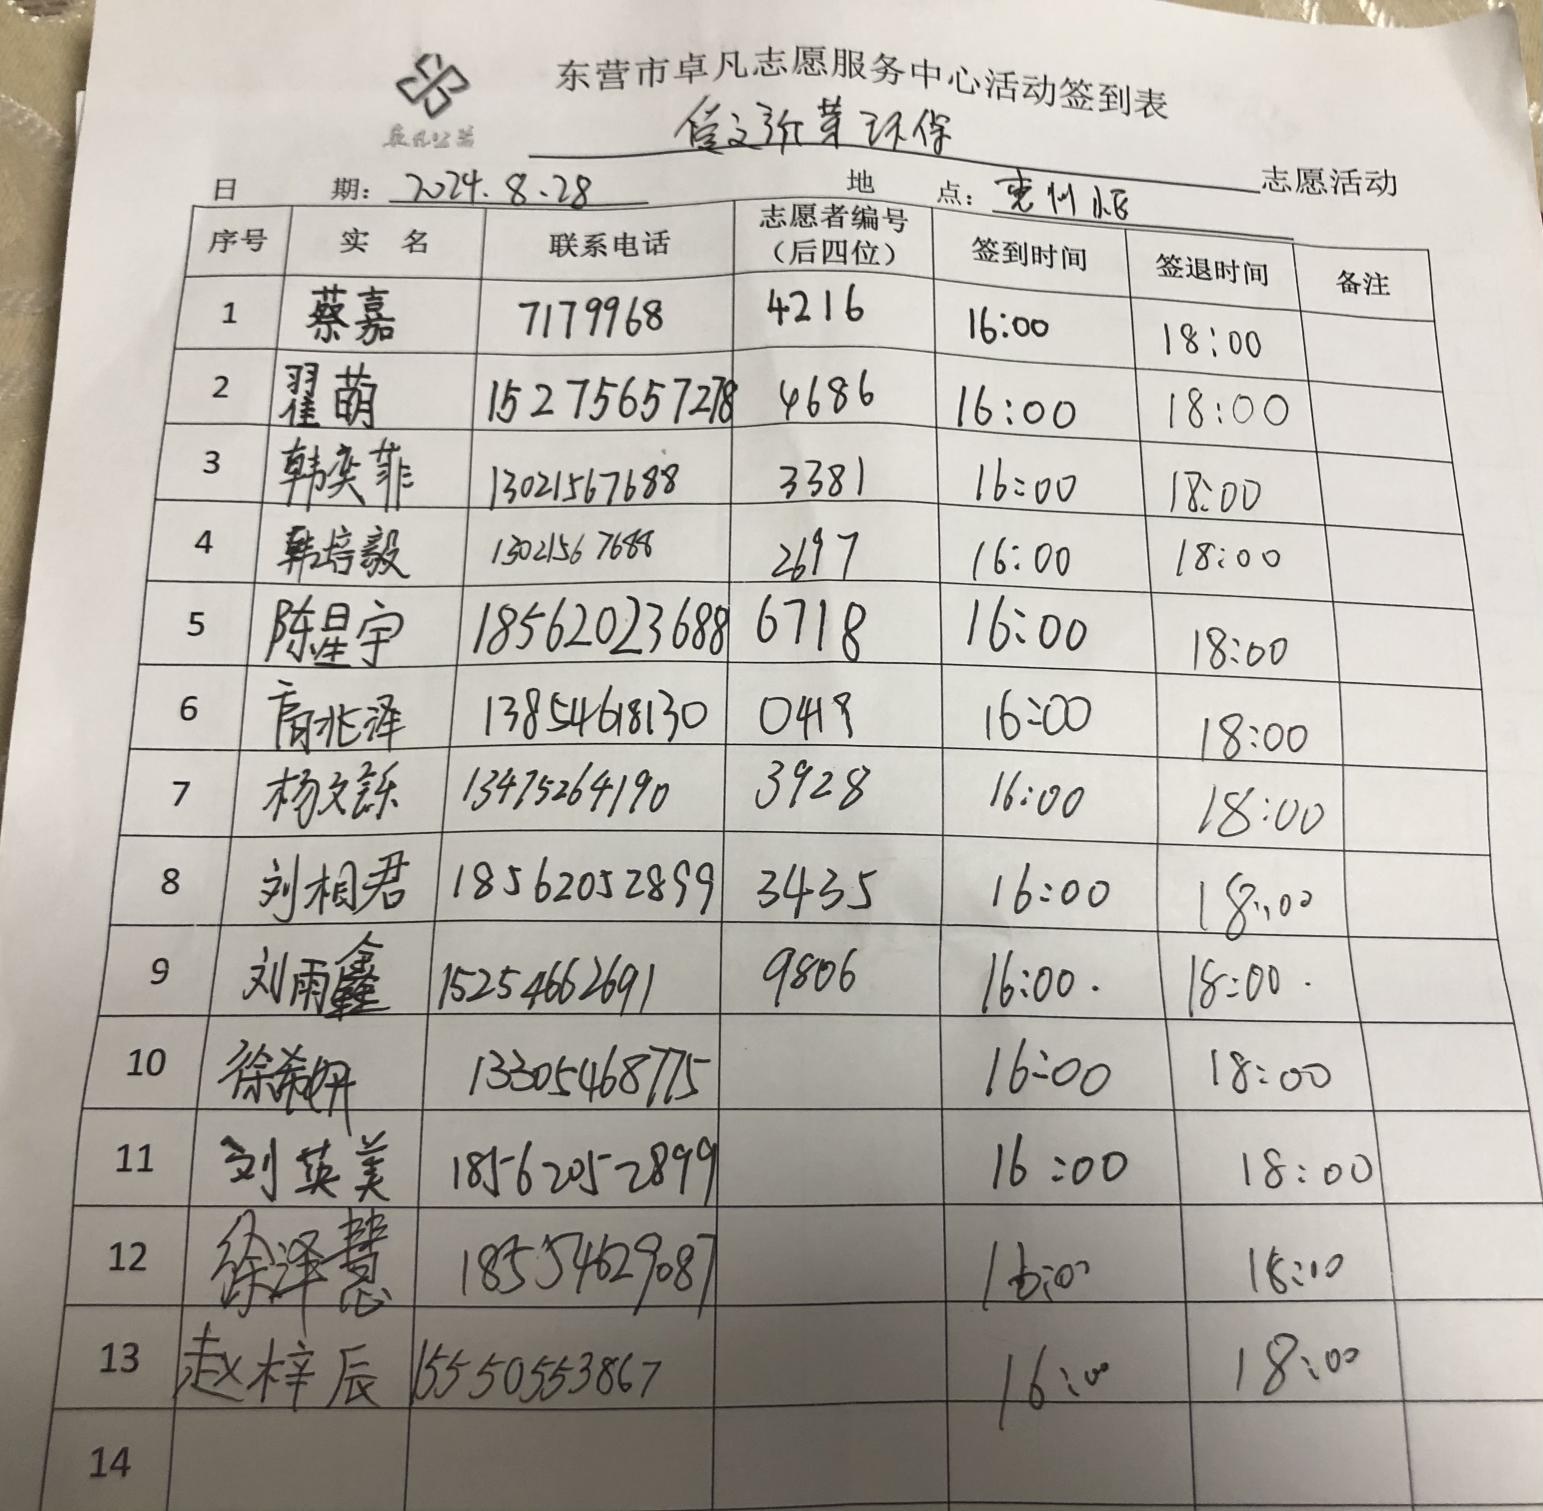 东营市卓凡志愿服务中心活动签到表
卓凡公益
环保 志愿活动
日 期: 2024.8.28 地 点:
序号 实 名 联系电话 志愿者编号（后四位） 签到时间 签退时间 备注
1 蔡嘉 7179968 4216 16:00 18:00
2 翟萌 15275657278 4686 16:00 18:00
3 韩奕菲 13021567688 3381 16:00 18:00
4 韩培毅 13021567688 2697 16:00 18:00
5 陈星宇 18562023688 6718 16:00 18:00
6 高兆泽 13854618130 0419 16:00 18:00
7 杨文 13475264190 3928 16:00 18:00
8 刘相君 18562052899 3435 16:00 18:00
9 刘雨鑫 15254662691 9806 16:00. 18:00.
10 徐希妍 13305468775 16:00 18:00
11 刘英美 18562052899 16:00 18:00
12 徐泽慧 18554629087 16:00 18:00
13 赵梓辰 15550553867 16:00 18:00
14